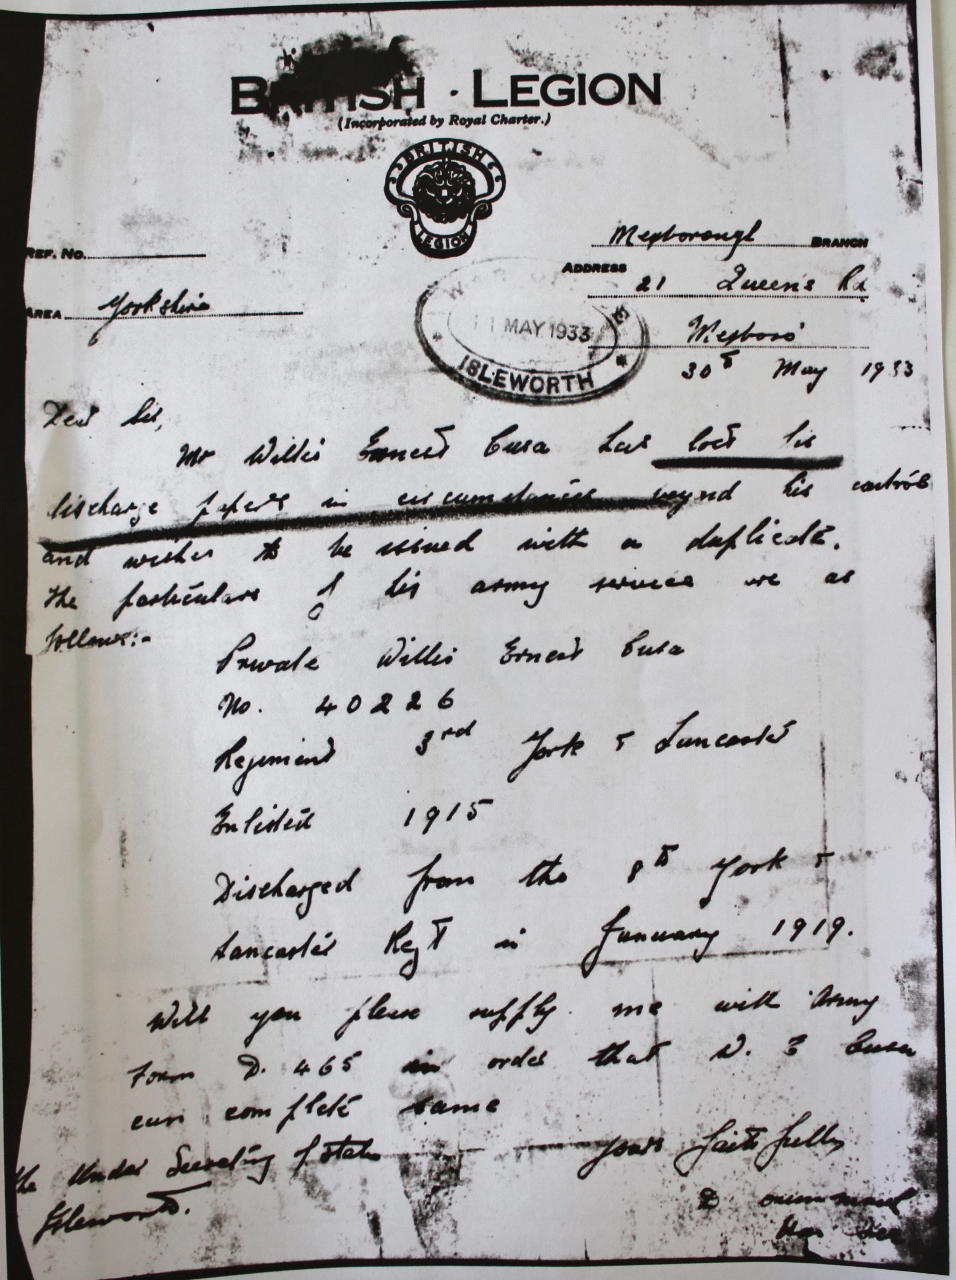 BRITISH · LEGION
(Incorporated by Royal Charter.)
BRITISH
LEGION
REF. No.
Mexborough BRANCH
ADDRESS 21 Queen's Rd
AREA Yorkshire
Mexboro'
MAY 1933
ISLEWORTH
30th May 1933
Dear Sir,
Mr Willis Ernest Cusa has lost his
discharge papers in circumstances beyond his control
and wishes to be issued with a duplicate.
The particulars of his army service are as
follows:-
Private Willis Ernest Cusa
No. 40226
Regiment 3rd York & Lancaster
Enlisted 1915
Discharged from the 8th York &
Lancaster Regt in January 1919.
Will you please supply me with Army
Form D. 465 in order that W. E Cusa
can complete same
Yours faithfully
The Under Secretary of State
Isleworth.
D Drummond
Hon Sec